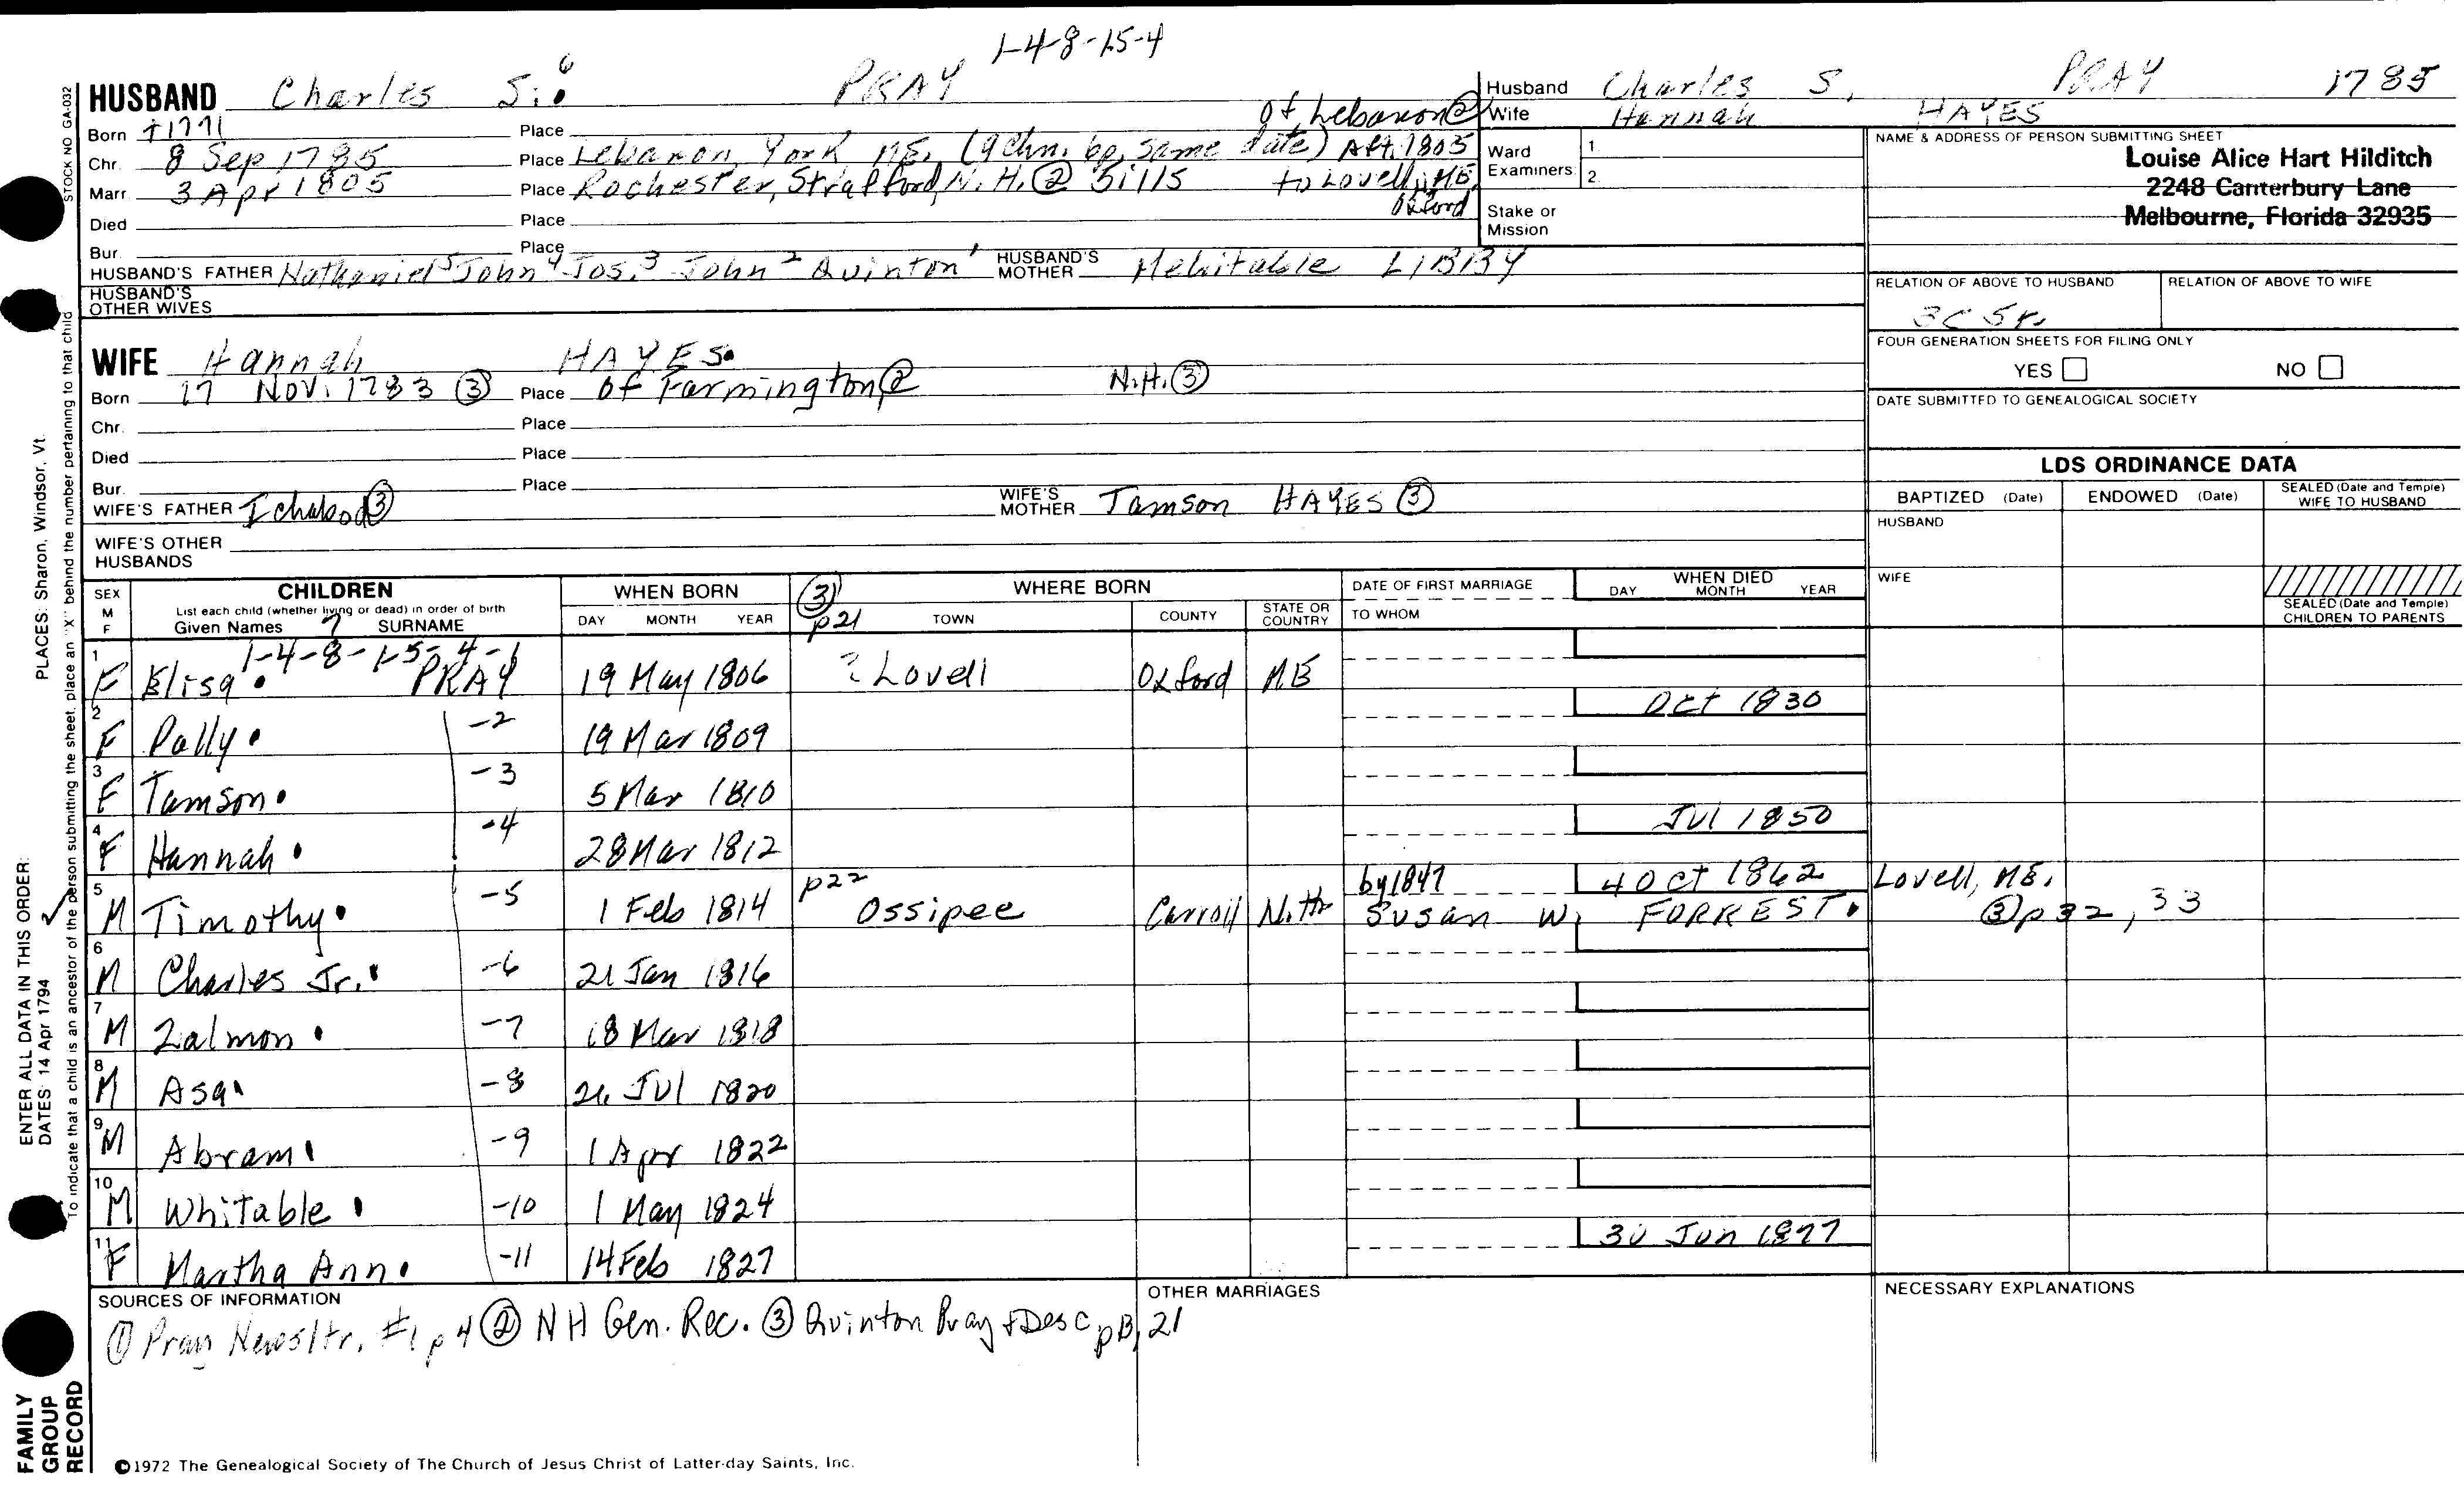 1-4-8-15-4
HUSBAND Charles S. 6 PRAY
Husband Charles S. PRAY 1785
Wife Hannah HAYES
Born +1771 Place of Lebanon ②
Chr. 8 Sep 1785 Place Lebanon, York ME. (9 Chn. bp. same date) Aft. 1805
Marr. 3 Apr 1805 Place Rochester, Strafford, N.H. ② 51115 to Lovell, ME, Oxford
Died Place
Bur. Place
HUSBAND'S FATHER Nathaniel 5 John 4 Jos. 3 John 2 Quinton 1 HUSBAND'S MOTHER Mehitable LIBBY
HUSBAND'S OTHER WIVES
Ward Examiners 1. 2.
Stake or Mission
NAME & ADDRESS OF PERSON SUBMITTING SHEET
Louise Alice Hart Hilditch
2248 Canterbury Lane
Melbourne, Florida 32935
RELATION OF ABOVE TO HUSBAND RELATION OF ABOVE TO WIFE
3C 5r.
FOUR GENERATION SHEETS FOR FILING ONLY
YES NO
DATE SUBMITTED TO GENEALOGICAL SOCIETY
WIFE Hannah HAYES.
Born 17 Nov. 1783 ③ Place of Farmington ② N.H. ③
Chr. Place
Died Place
Bur. Place
WIFE'S FATHER Ichabod ③ WIFE'S MOTHER Tamson HAYES ③
WIFE'S OTHER HUSBANDS
LDS ORDINANCE DATA
BAPTIZED (Date) ENDOWED (Date) SEALED (Date and Temple) WIFE TO HUSBAND
HUSBAND
WIFE
SEALED (Date and Temple) CHILDREN TO PARENTS
SEX M F CHILDREN WHEN BORN ③ WHERE BORN DATE OF FIRST MARRIAGE WHEN DIED DAY MONTH YEAR
List each child (whether living or dead) in order of birth
Given Names 7 SURNAME DAY MONTH YEAR p21 TOWN COUNTY STATE OR COUNTRY TO WHOM
1-4-8-15-4-1
1 F Elisa. PRAY 19 May 1806 ? Lovell Oxford ME
2 F Polly. -2 19 Mar 1809 Oct 1830
3 F Tamson. -3 5 Mar 1810
4 F Hannah. -4 28 Mar 1812 Jul 1850
5 M Timothy. -5 1 Feb 1814 p22 Ossipee Carroll N.H. by 1847 Susan W. FORREST. 4 Oct 1862 Lovell, ME. ③ p 32, 33
6 M Charles Jr. -6 21 Jan 1816
7 M Zalmon. -7 18 Mar 1818
8 M Asa. -8 26 Jul 1820
9 M Abram. -9 1 Apr 1822
10 M Whitable. -10 1 May 1824
11 F Martha Ann. -11 14 Feb 1827 30 Jun 1877
SOURCES OF INFORMATION
① Pray Newsltr. #1 p 4 ② NH Gen. Rec. ③ Quinton Pray + Desc p B, 21
OTHER MARRIAGES
NECESSARY EXPLANATIONS
©1972 The Genealogical Society of The Church of Jesus Christ of Latter-day Saints, Inc.
FAMILY GROUP RECORD
ENTER ALL DATA IN THIS ORDER:
DATES: 14 Apr 1794
PLACES: Sharon, Windsor, Vt.
To indicate that a child is an ancestor of the person submitting the sheet, place an "X" behind the number pertaining to that child
STOCK NO GA-032